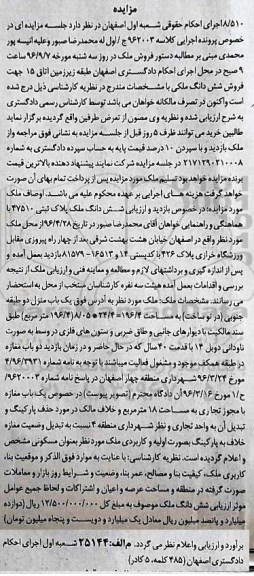 مزایده
۸/۵۱۰ اجرای احکام حقوقی شعبه اول اصفهان در نظر دارد جلسه مزایده ای در
خصوص پرونده اجرایی کلاسه ۹۶۲۰۰۳ ج/اول له محمدرضا صبور و علیه انیسه پور
محمدی مبنی بر مطالبه دستور فروش ملک در روز سه شنبه مورخه ۹۶/۹/۷ ساعت
۹ صبح در محل اجرای احکام دادگستری اصفهان طبقه زیرزمین اتاق ۱۵ جهت
فروش شش دانگ ملکی با مشخصات مندرج در نظریه کارشناسی ذیل درج شده
است واکنون در تصرف مالکانه خواهان می باشد توسط کارشناس رسمی دادگستری
به شرح ارزیابی شده و نظریه وی مصون از تعرض طرفین واقع گردیده برگزار نماید
طالبین خرید می توانند ظرف ۵ روز قبل از جلسه مزایده به نشانی فوق مراجعه و از
ملک بازدید و با سپردن ۱۰ درصد قیمت پایه به حساب سپرده دادگستری به شماره
۲۱۷۱۲۹۰۲۱۰۰۰۸ در جلسه مزایده شرکت نمایند پیشنهاد دهنده بالاترین قیمت
برنده مزایده خواهد بود تسلیم ملک مورد مزایده پس از پرداخت تمام بهای آن صورت
خواهد گرفت هزینه های اجرایی بر عهده محکوم علیه می باشد. اوصاف ملک
مورد مزایده: در خصوص بازدید و ارزیابی شش دانگ ملک پلاک ثبتی ۴۷۵۱۰ با
هماهنگی و راهنمایی خواهان آقای محمدرضا صبور در تاریخ ۹۶/۴/۲۸ محل ملک
مورد نظر واقع در اصفهان خیابان هشت بهشت شرقی بعد از چهار راه پیروزی مقابل
ورزشگاه خرازی پلاک ۴۲۶ با کدپستی ۱۴ و ۱۶۵۱۳-۸۱۵۷۹ بازدید بعمل آمده و
پس از اندازه گیری و برداشتهای لازم و مطالعه و معاینه فنی و ارزیابی ملک از نتیجه
بررسی و اقدامات بعمل آمده هیئت سه نفره کارشناسان منتخب از محل به استحضار
می رسانند. مشخصات ملک: ملک مورد نظر به آدرس فوق یک باب منزل دو طبقه
جنوبی (در نو ساخت) به مساحت ۱۹۶/۴=۲۴/۴ ۸/۰۵×(۱۹۶/۴ متر مربع) طبق
سند مالکیت با دیوارهای جانبی و طاق ضربی و ستون های فلزی در وسط به صورت
ناودانی دوبل ۱۴ با قدمت ۴۰ سال که در حال حاضر و در زمان بازدید دو باب مغازه
در طبقه همکف موجود و مشغول فعالیت میباشند با توجه به نامه شماره ۴/۹۶/۳۹۳۱
مورخ ۹۶/۳/۲۴ شهرداری منطقه چهار اصفهان در پاسخ نامه شماره ۹۶۲۰۰۳
ح/۱ مورخ ۹۶/۳/۱۶ آن دادگاه محترم (تصویر پیوست) در خصوص یک باب مغازه
با مجوز تجاری به مساحت ۱۸ مترمربع و خلاف مالک در مورد حذف پارکینگ و
تبدیل آن به واحد تجاری و نظر شهرداری منطقه ۴ نسبت به تبدیل وضعیت مغازه
خلاف به پارکینگ بصورت اولیه و کاربردی ملک مورد نظر بعنوان مسکونی مشخص
و اعلام گردیده است. نظریه کارشناسی: با عنایت به موارد فوق الذکر و موقعیت بنا،
کاربری ملک، کیفیت بنا و مصالح، عمر بنا، وضعیت و شرایط روز بازار و معاملات
صورت گرفته در منطقه و مساحت عرصه و اعیان و اشتراکات و لحاظ جمیع عوامل
موثر ارزیابی شش دانگ ملک موصوف به مبلغ کل ۱۲/۵۰۰/۰۰۰/۰۰۰ ریال (دوازده
میلیارد و پانصد میلیون ریال معادل یک میلیارد و دویست و پنجاه میلیون تومان)
برآورد و ارزیابی و اعلام نظر می گردد. م الف: ۲۵۱۴۴ شعبه اول اجرای احکام
دادگستری اصفهان (۴۸۵ کلمه، ۵ کادر)